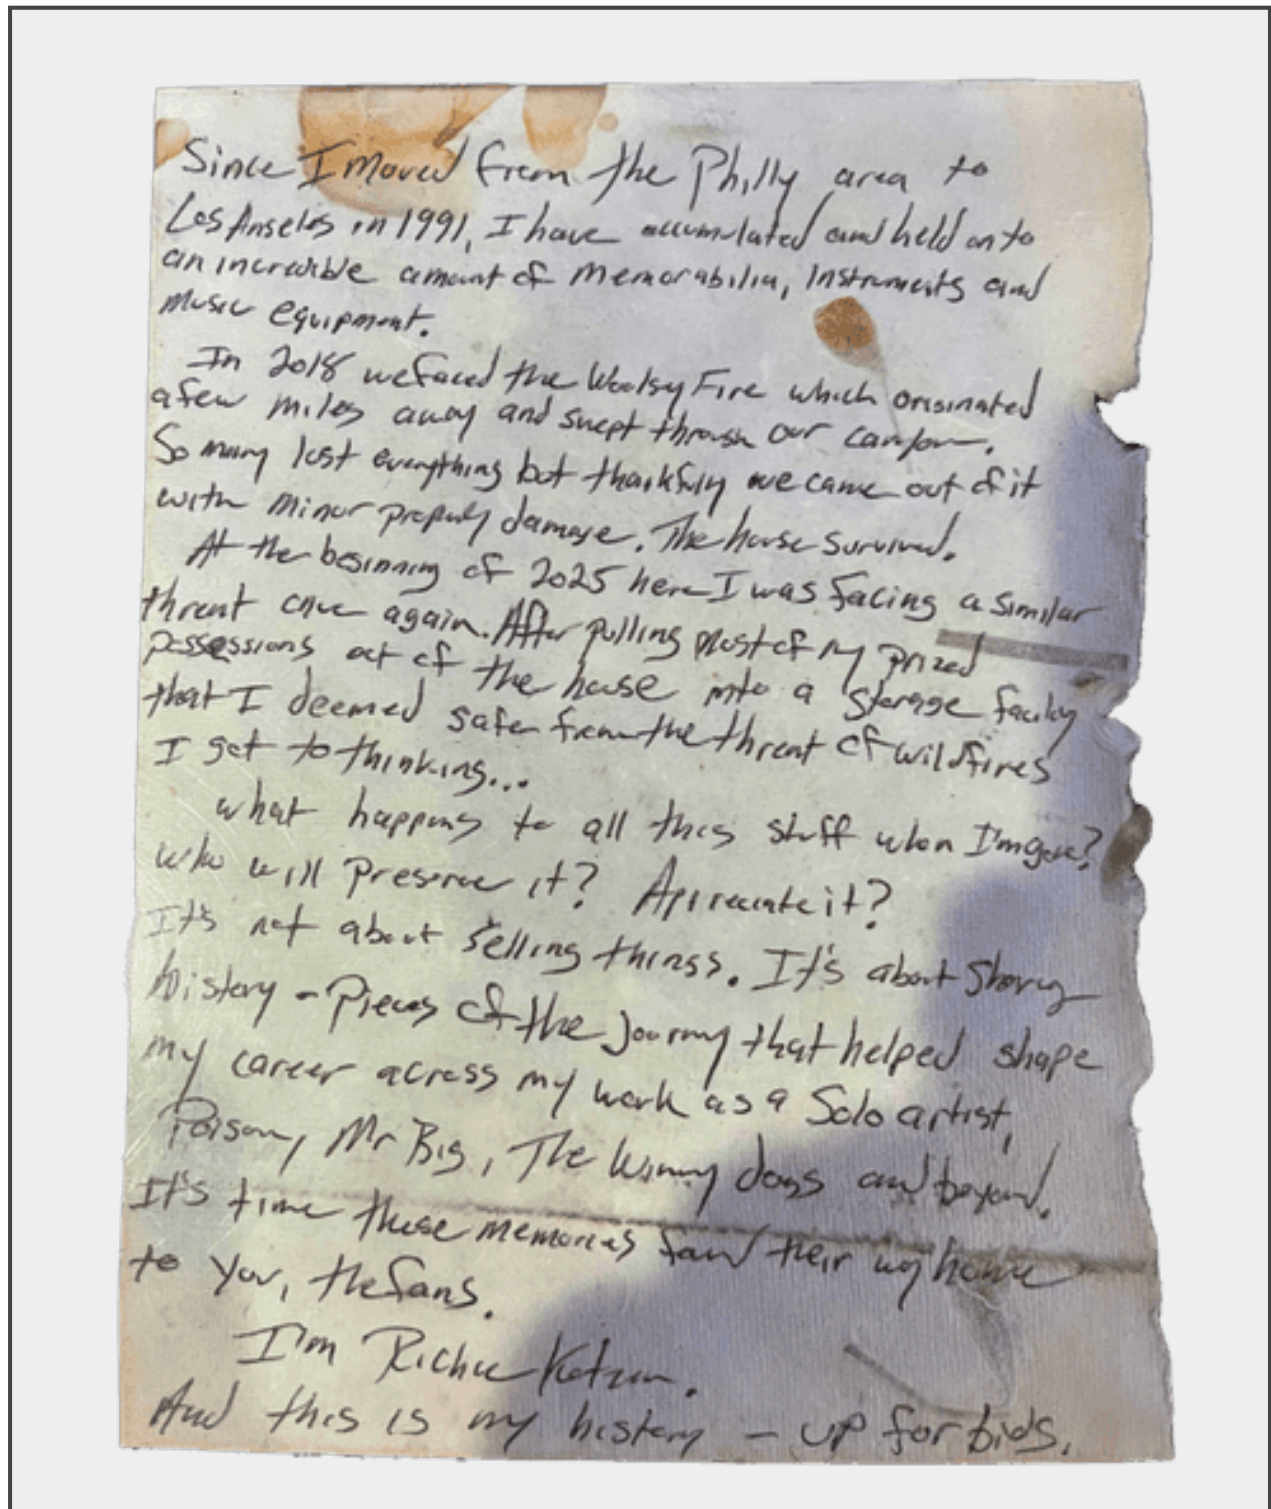 Since I moved from the Philly area to
Los Angeles in 1991, I have accumulated and held onto
an incredible amount of memorabilia, instruments and
music equipment.
In 2018 we faced the Woolsy Fire which originated
a few miles away and swept through our canyon.
So many lost everything but thankfully we came out of it
with minor property damage. The house survived.
At the beginning of 2025 here I was facing a similar
threat once again. After pulling most of my prized
possessions out of the house into a storage facility
that I deemed safer from the threat of wildfires
I got to thinking...
what happens to all this stuff when I'm gone?
who will preserve it? Appreciate it?
It's not about selling things. It's about sharing
history - Pieces of the journey that helped shape
my career across my work as a Solo artist,
Poison, Mr Big, The Winery dogs and beyond.
It's time these memories found their way home
to you, the fans.
I'm Richie Kotzen.
And this is my history - up for bids.